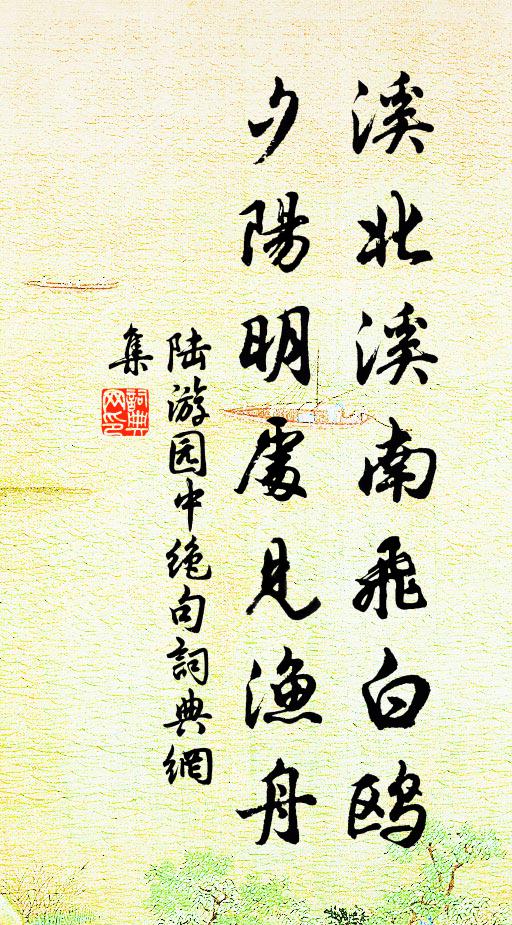 溪北溪南飛白鸥
夕陽明處見漁舟
陆游园中绝句詞典網
集
詞典
网印